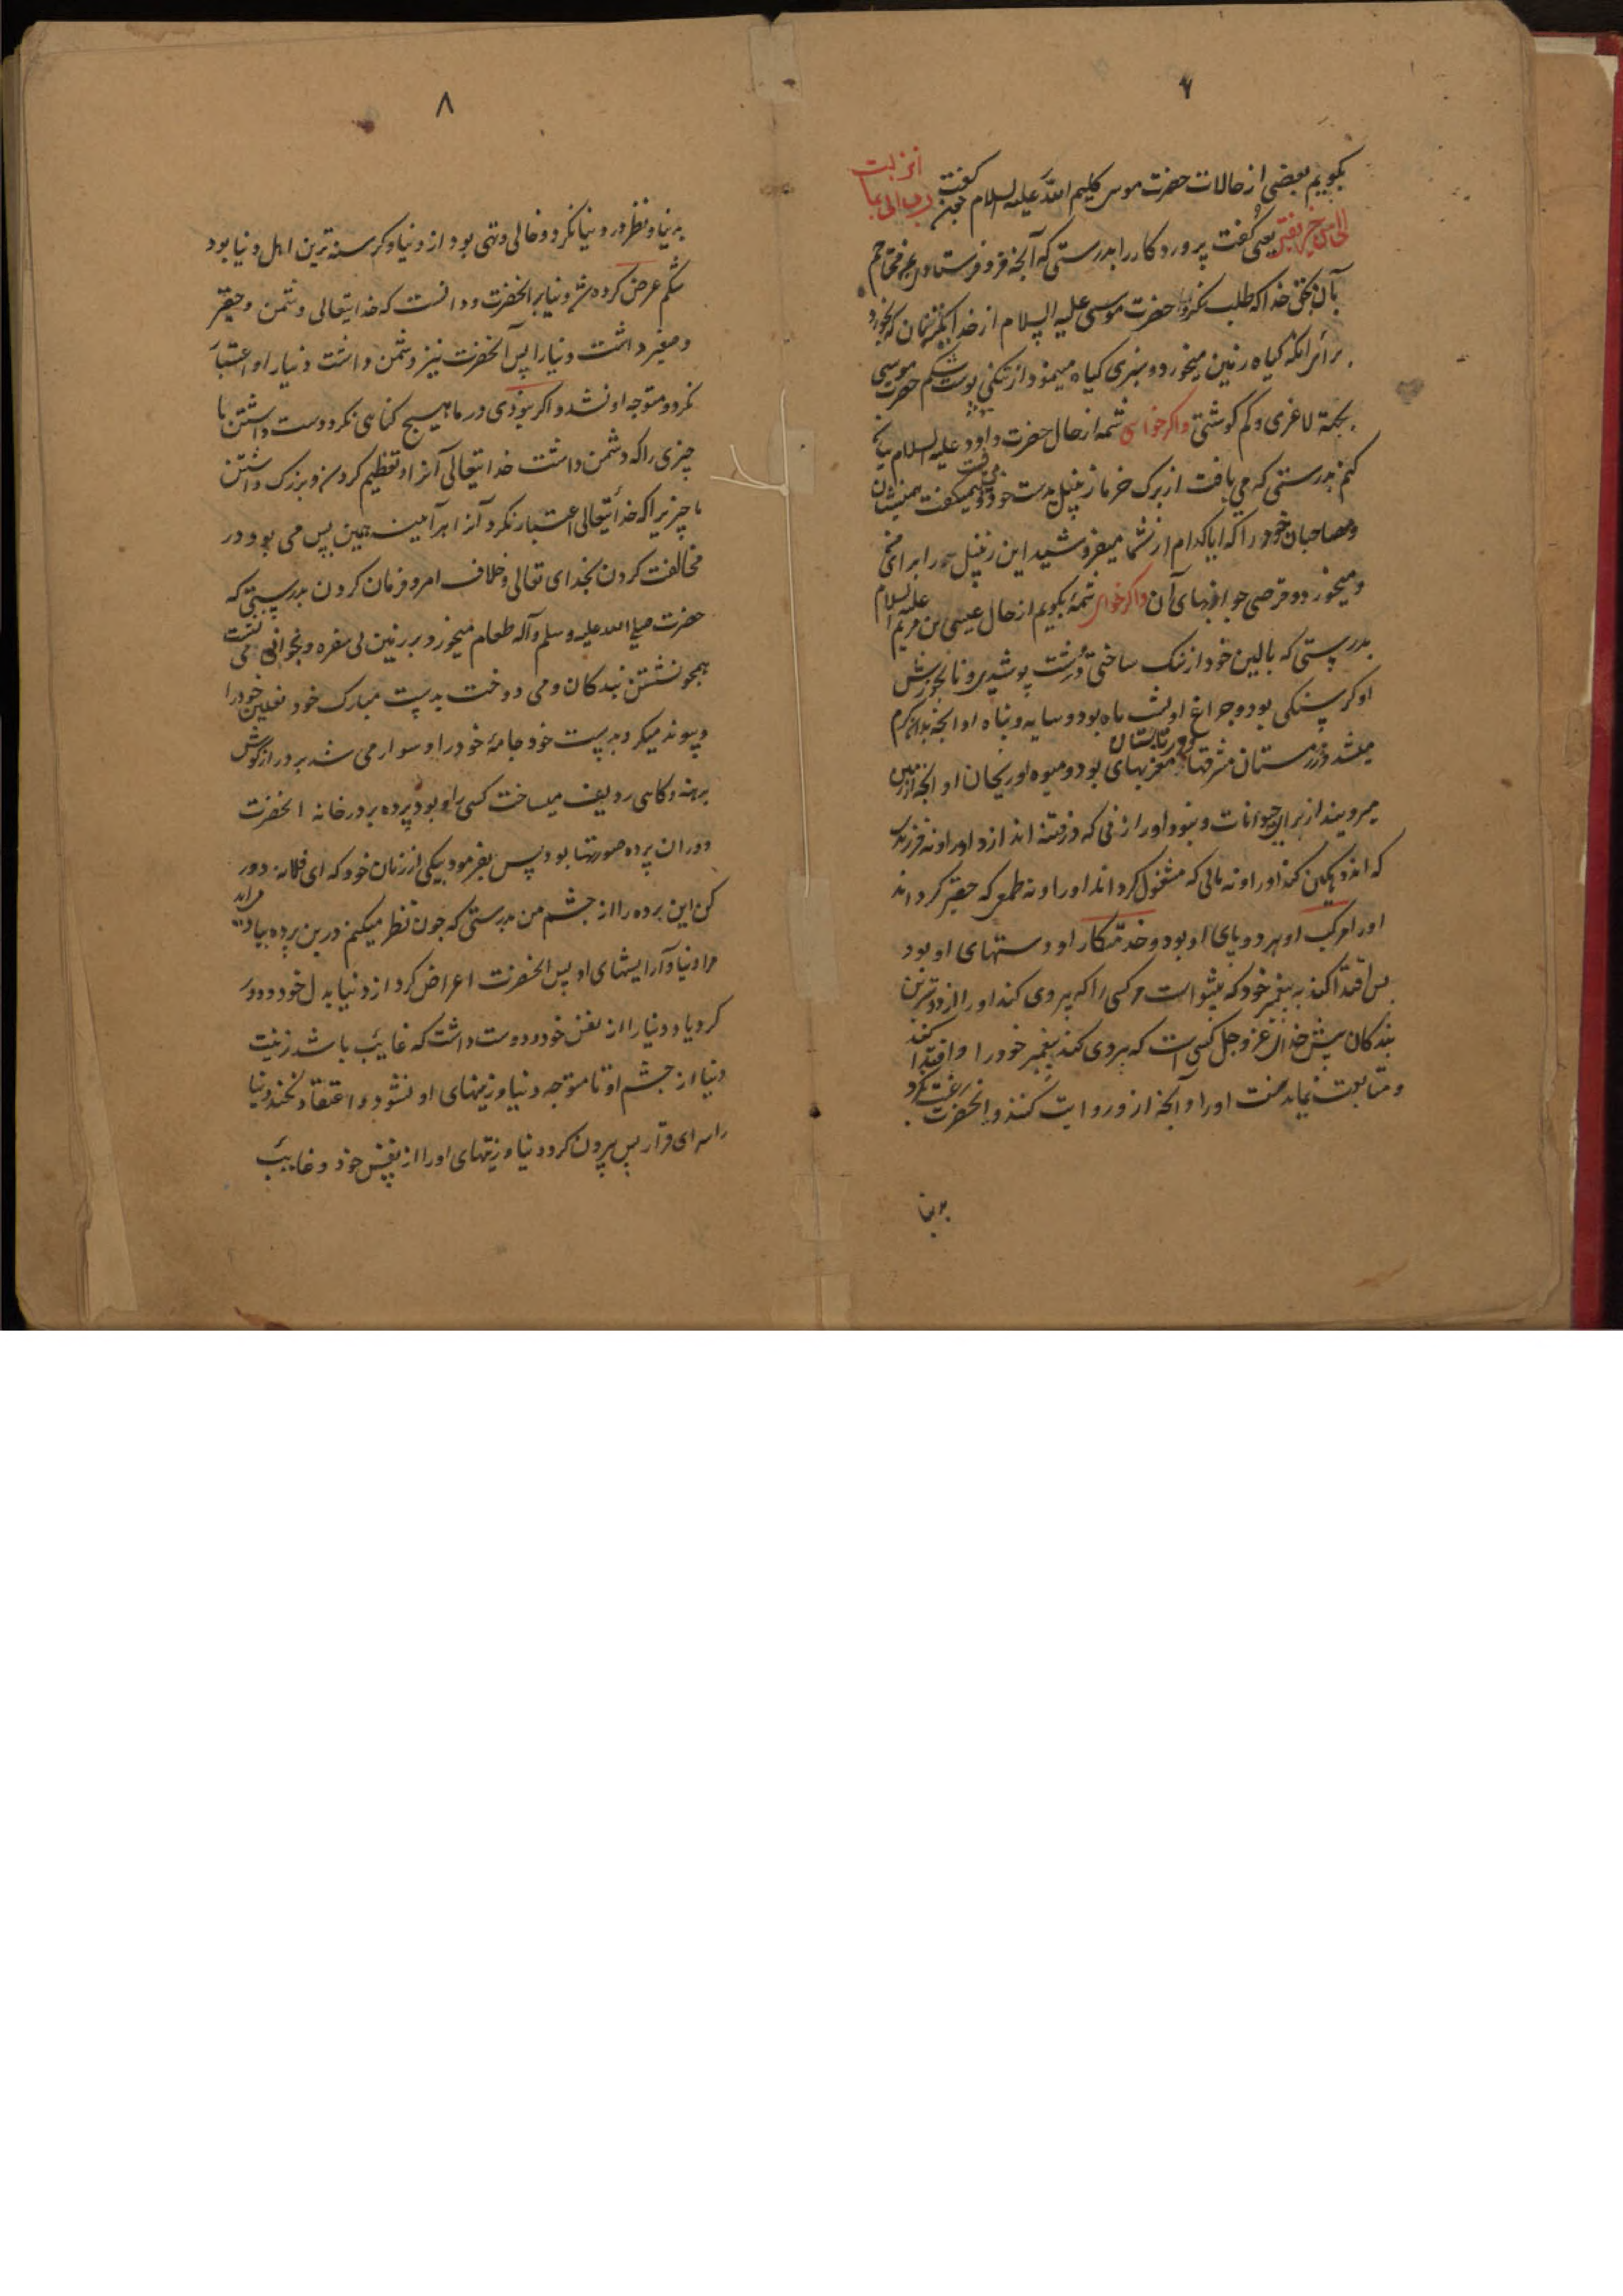 ۷
بگویم بعضی از حالات حضرت موسی کلیم الله علیه السلام گفت رب انی لما انزلت
الی من خیر فقیر یعنی گفت پروردگارا بدرستی که آنچه فرو فرستادی محتاجم
بآن بحق خدا که طلب نکرد حضرت موسی علیه السلام از خدا مگر نان که بخورد
برای آنکه گیاه زمین میخورد و سبزی گیاه مینمود از تنکی پوست شکم حضرت موسی
بجهة لاغری و کم گوشتی و اگر خواهی شمه از حال حضرت داود علیه السلام بیان
کنم بدرستی که می بافت از برگ خرما زنبیل بدست خود و میگفت همنشینان
ومصاحبان خود را که ایا کدام از شما میفروشید این زنبیل را برای من
و میخورد و قرصی جو از بهای آن و اگر خواهی شمه بگویم از حال عیسی بن مریم علیه السلام
بدرستی که بالین خود از سنک ساختی و درشت پوشیدی و نانخورش
او گرسنگی بود و چراغ او شب ماه بود و سایه و پناه او آنچه بدان گرم
میشد در زمستان مشرقها و در تابستان مغربهای بود و میوه او ریحان او آنچه از زمین
میروید از برای حیوانات و نبود او را زنی که در فتنه اندازد او را و نه فرزند
که اندوهگین کند او را و نه مالی که مشغول گرداند او را و نه طمعی که حقیر گرداند
او را مرکب او هر دو پای او بود و خدمتکار او دستهای او بود
پس اقتدا کند به پیغمبر خود که پیشوا است هر کسی را که پیروی کند او را از دوسترین
بندکان پیش خدای عز و جل کسی است که پیروی کند پیغمبر خود را و اقتدا کند
و متابعت نماید سنت او را و آنچه از و روایت کنند و انحضرت رغبت نکرد
بدنیا
۸
بدنیا و نظر در دنیا نکرد و خالی و تهی بود از دنیا و کرسنه ترین اهل دنیا بود
شکم عرض کرده شد دنیا بر انحضرت و دانست که خدایتعالی دشمن و حقیر
و صغیر داشت دنیا را پس آنحضرت نیز دشمن داشت دنیا را و اعتبار
نکرد و متوجه او نشد و اگر نبودی در ما هیچ گناهی مگر دوست داشتن ما
چیزی را که دشمن داشت خدایتعالی آنرا و تعظیم کردن و بزرک داشتن
ما چیزیرا که خدایتعالی اعتبار نکرد آنرا هر آینه همین بس می بود در
مخالفت کردن بخدای تعالی و خلاف امر و فرمان کردن بدرستی که
حضرت صلی الله علیه وسلم وآله طعام میخورد بر زمین بی سفره و بخوانی می نشست
همچو نشستن بندکان و می دوخت بدست مبارک خود نعلین خود را
و پیوند میکرد بدست خود جامهٔ خود را و سوار می شد بر درازگوش
برهنه و کاهی ردیف میساخت کسی را و بود پرده بر در خانه انحضرت
و در ان پرده صورتها بود پس بفرمود بیکی از زنان خود که ای فلانه دور
کن این پرده را از چشم من بدرستی که چون نظر میکنم درین پرده بیاد می آید
مرا دنیا و آرایشهای او پس انحضرت اعراض کرد از دنیا بدل خود و دور
کرد یاد دنیا را از نفس خود و دوست داشت که غایب باشد زینت
دنیا از چشم او تا متوجه دنیا و زینتهای او نشود و اعتقاد نکند دنیا
را سرای قرار پس بیرون کرد دنیا و زینتهای او را از نفس خود و غایب